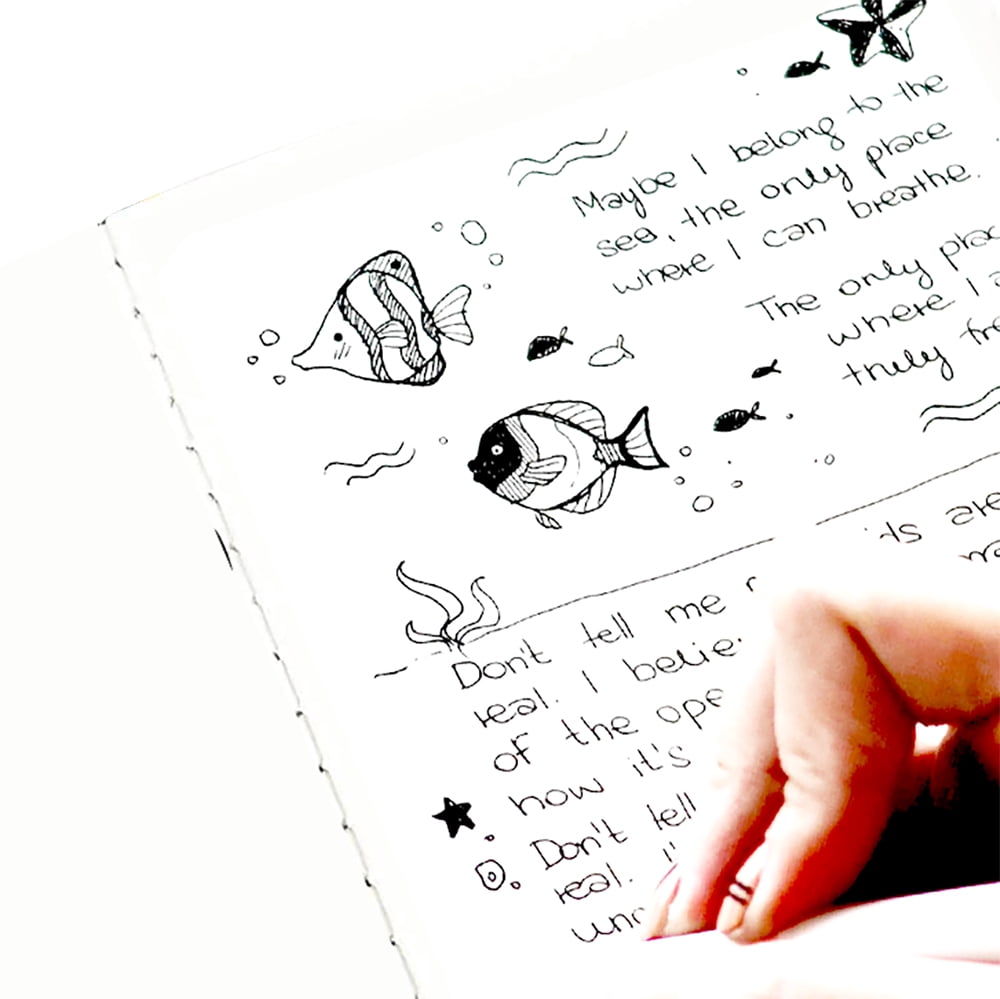 Maybe I belong to the
sea, the only place
where I can breathe.
The only plac
where I a
truly fre
ts are
Don't tell me
real. I belie
of the ope
how it's
Don't tell
real. I'